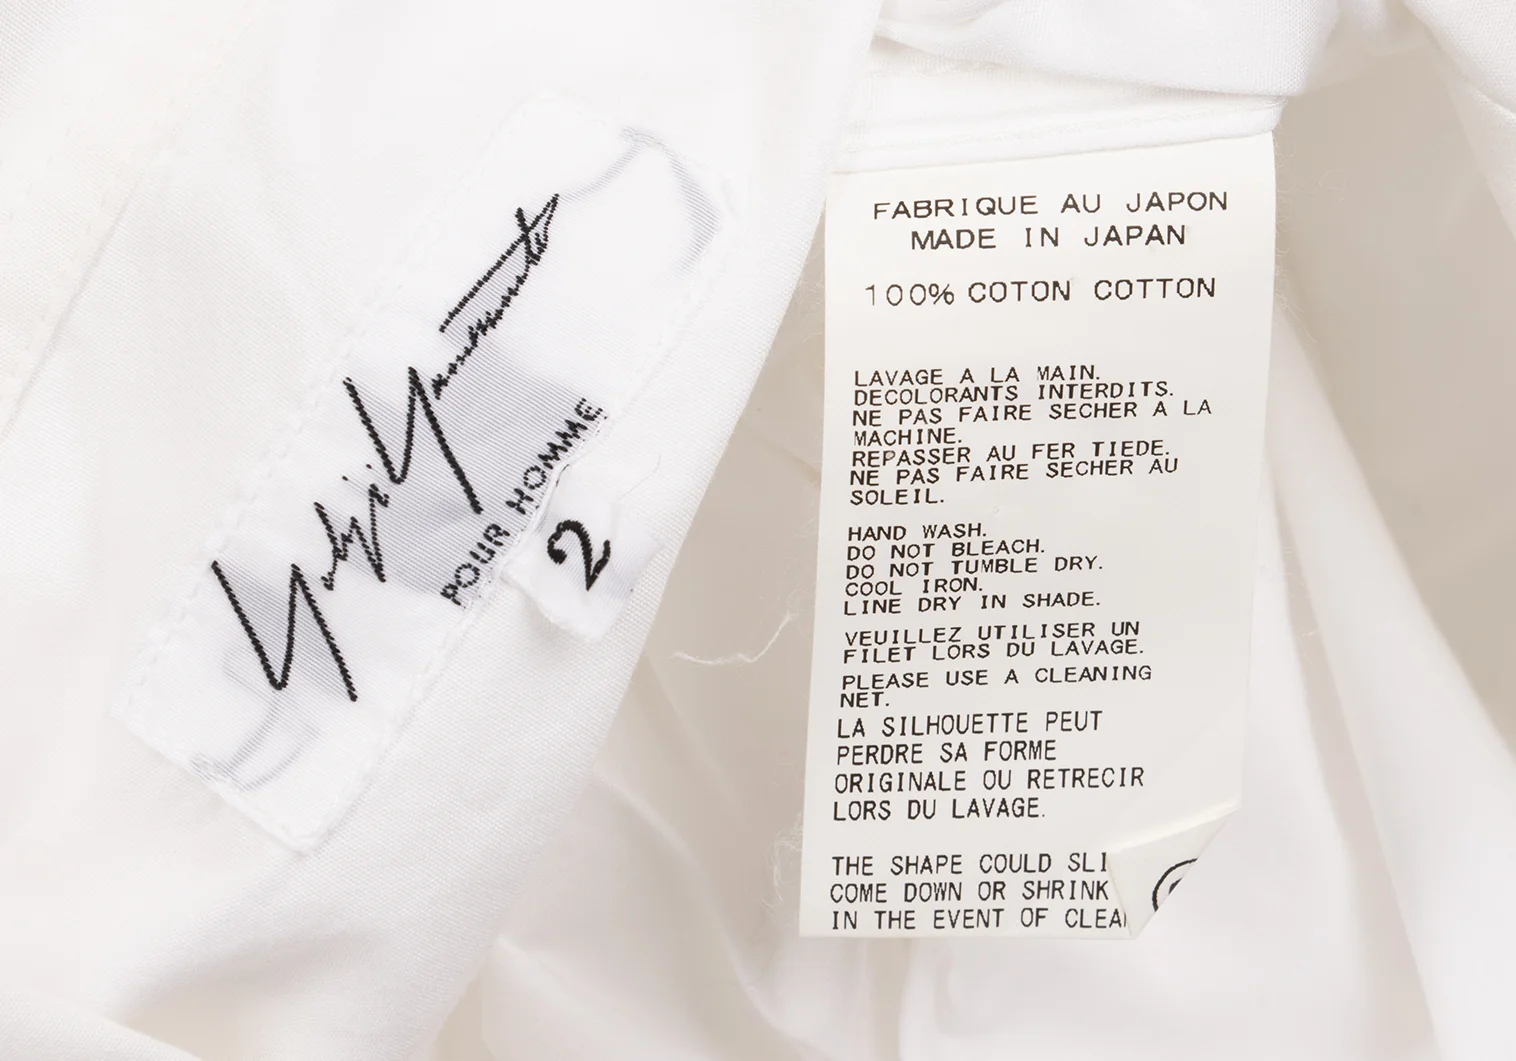 Yohji Yamamoto
POUR HOMME
2
FABRIQUE AU JAPON
MADE IN JAPAN
100% COTON COTTON
LAVAGE A LA MAIN.
DECOLORANTS INTERDITS.
NE PAS FAIRE SECHER A LA
MACHINE.
REPASSER AU FER TIEDE.
NE PAS FAIRE SECHER AU
SOLEIL.
HAND WASH.
DO NOT BLEACH.
DO NOT TUMBLE DRY.
COOL IRON.
LINE DRY IN SHADE.
VEUILLEZ UTILISER UN
FILET LORS DU LAVAGE.
PLEASE USE A CLEANING
NET.
LA SILHOUETTE PEUT
PERDRE SA FORME
ORIGINALE OU RETRECIR
LORS DU LAVAGE.
THE SHAPE COULD SLI
COME DOWN OR SHRINK
IN THE EVENT OF CLEA